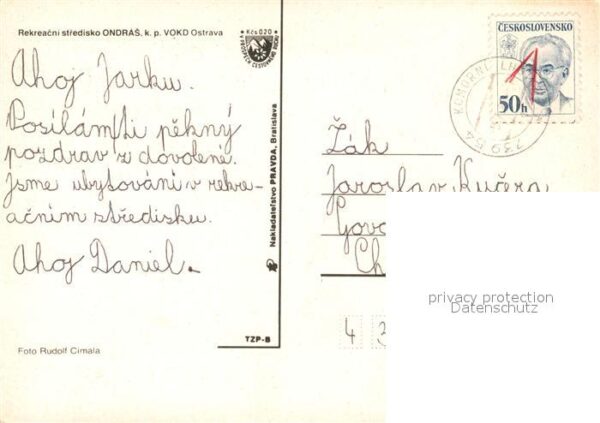 Rekreační středisko ONDRÁŠ, k. p. VOKD Ostrava
Kčs 0,20
Ahoj Jarku.
Posílám ti pěkný
pozdrav z dovolené.
Jsme ubytováni v rekre-
ačním středisku.
Ahoj Daniel.
Foto Rudolf Cimala
Nakladatelstvo PRAVDA, Bratislava
TZP-B
ČESKOSLOVENSKO
50h
1
739 54
Žák
Jaroslav Kučera
Gova
Ch
4 3
privacy protection
Datenschutz